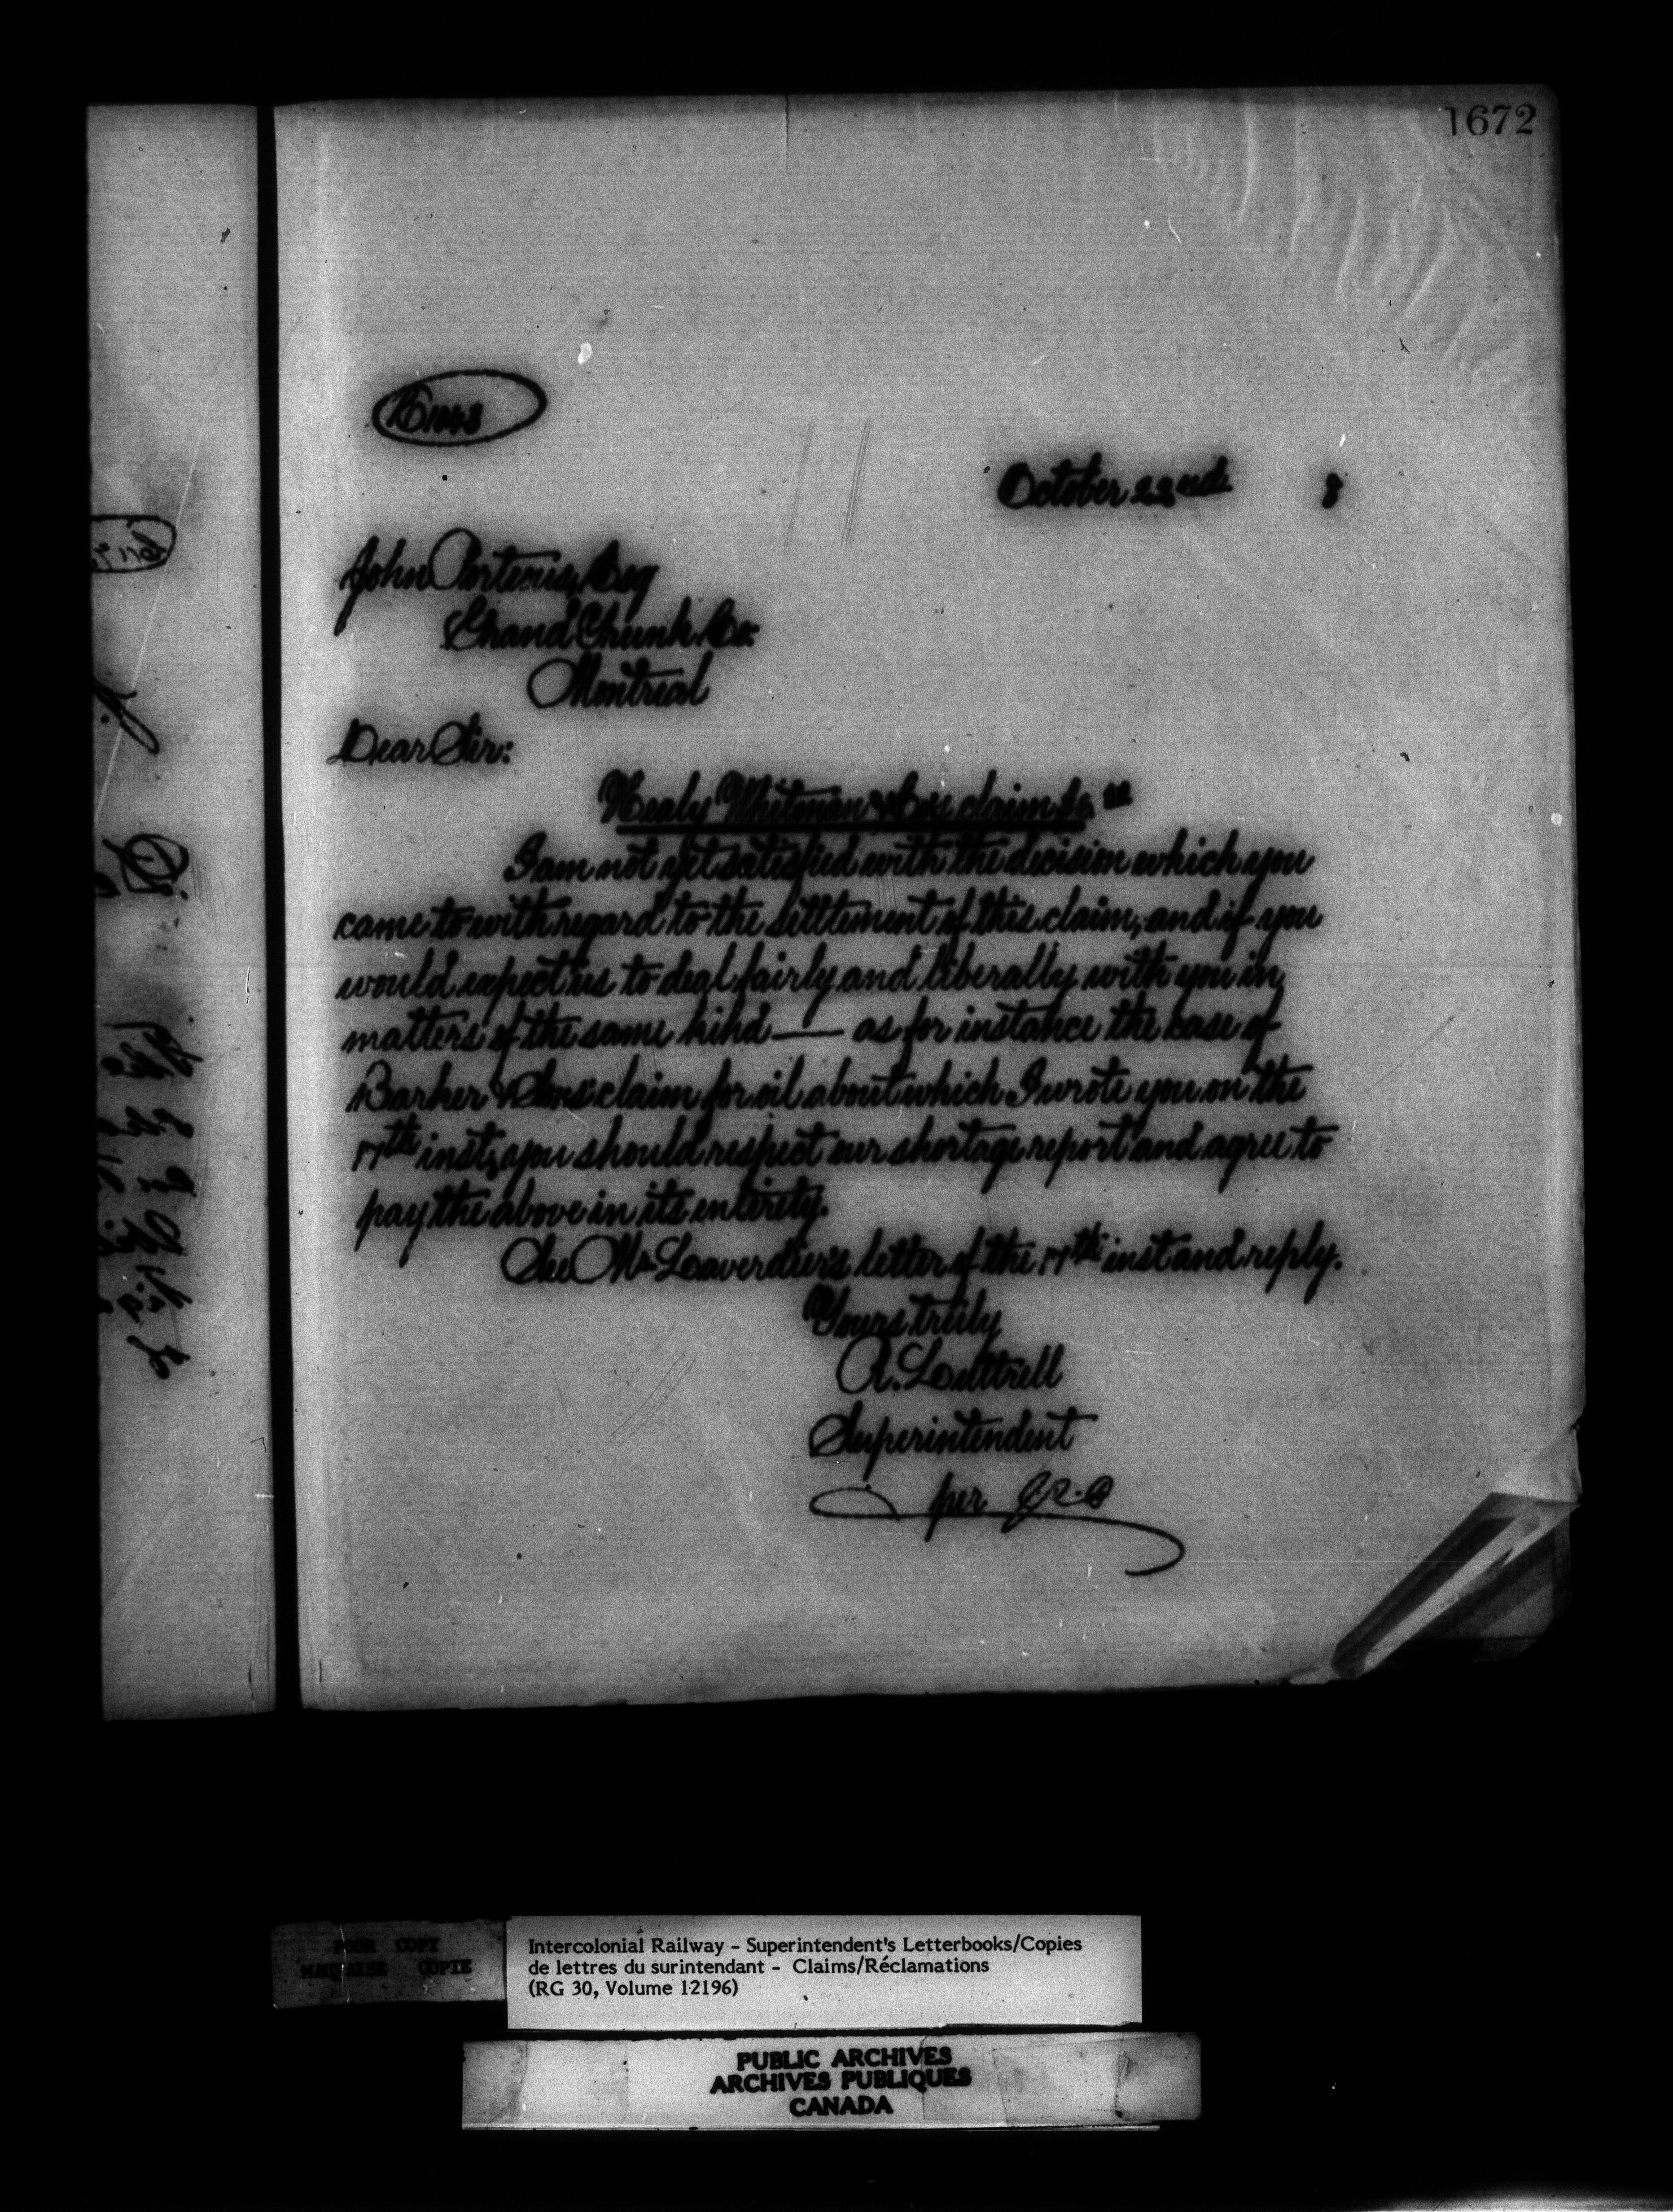 1672
October 22nd 8
John Porteous, Esq
Grand Trunk Co:
Montreal
Dear Sir:
Healy Whitman & Co's claim $6
I am not yet satisfied with the decision which you
came to with regard to the settlement of this claim, and if you
would expect us to deal fairly and liberally with you in
matters of the same kind — as for instance the case of
Barker & Sons' claim for oil about which I wrote you on the
17th inst, you should respect our shortage report and agree to
pay the above in its entirety.
See Mr Laverdier's letter of the 17th inst and reply.
Yours truly
A. Luttrell
Superintendent
per
POOR COPY
MAUVAISE COPIE
Intercolonial Railway - Superintendent's Letterbooks/Copies
de lettres du surintendant - Claims/Réclamations
(RG 30, Volume 12196)
PUBLIC ARCHIVES
ARCHIVES PUBLIQUES
CANADA